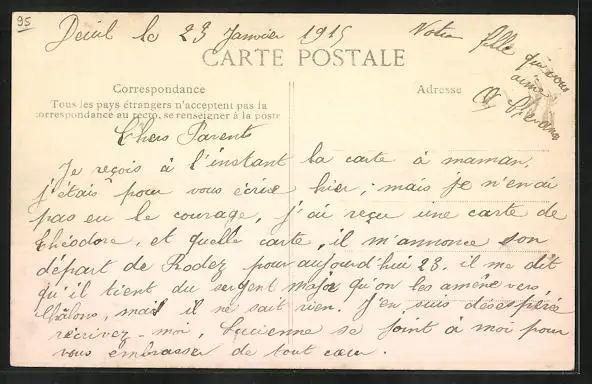 95
Deuil le 23 Janvier 1915
Votre fille qui vous
aime
CARTE POSTALE
Correspondance
Adresse
Tous les pays étrangers n'acceptent pas la
correspondance au recto, se renseigner à la poste
Chers Parents
Je reçois à l'instant la carte à maman,
j'étais pour vous écrire hier, mais je n'en ai
pas eu le courage, j'ai reçu une carte de
Théodore, et quelle carte, il m'annonce son
départ de Rodez pour aujourd'hui 23. il me dit
qu'il tient du sergent major qu'on les amène vers
Châlons, mais il ne sait rien. J'en suis désespérée
récrivez-moi, Lucienne se joint à moi pour
vous embrasser de tout cœur.